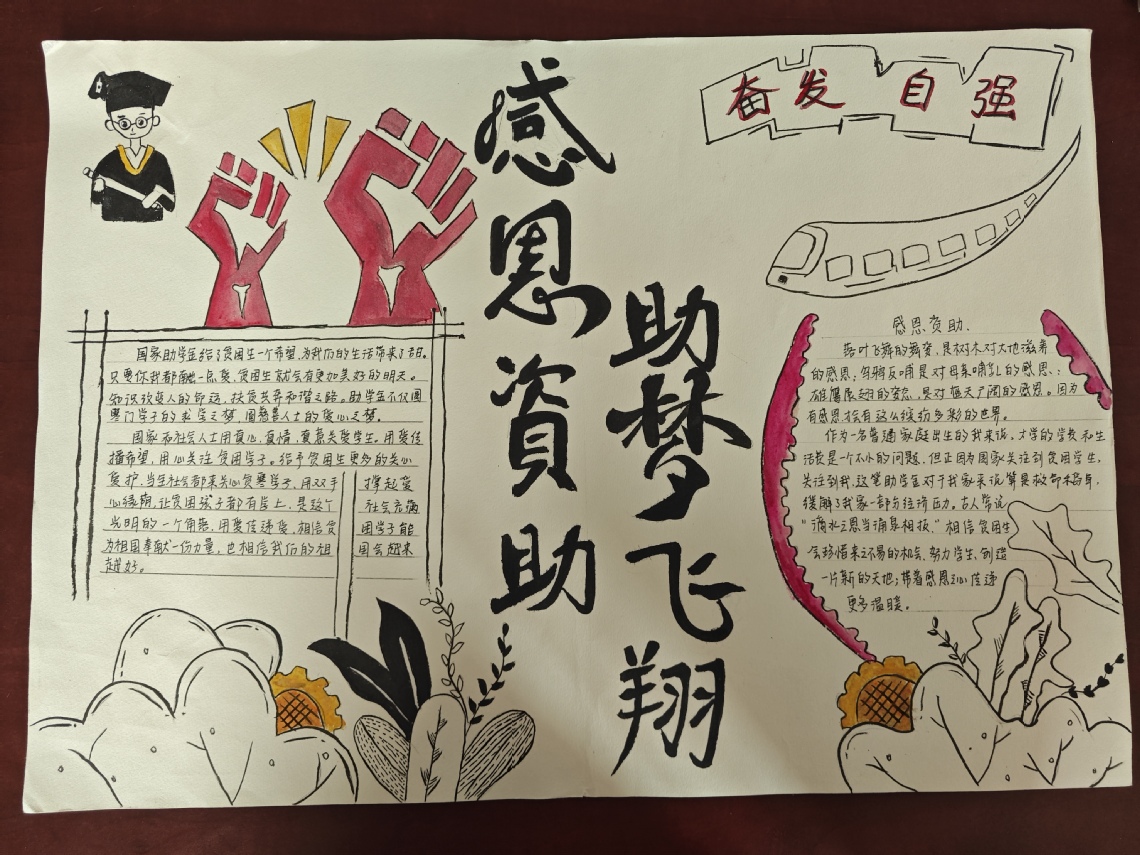 感恩資助
助梦飞翔
奋发自强
国家助学金给了贫困生一个希望,为我们的生活带来了改。
只要你我都献一点爱,贫困生就会有更加美好的明天。
知识改变人的命运,扶贫共奔和谐之路。助学金不仅圆
寒门学子的求学之梦,圆慈善人士的爱心之梦。
国家和社会人士用真心,真情,真意关爱学生。用爱传
播希望,用心关注贫困学子。给予贫困生更多的关心
爱护,当全社会都来关心贫寒学子,用双手撑起爱
心绿朝,让贫困孩子都有书上,是这个社会充满
光明的一个角落,用爱传递爱,相信贫困学子能
为祖国奉献一份力量,也相信我们的祖国会越来
越好。
感恩资助、
落叶飞舞的舞姿,是树木对大地滋养
的感恩;乌鸦反哺是对母亲哺乳的感恩;
雄鹰展翅的姿态,是对蓝天广阔的感恩。因为
有感恩才会有这么缤纷多彩的世界。
作为一名普通家庭出生的我来说,大学的学费和生
活费是一个不小的问题,但正因为国家关注到贫困学生,
关注到我,这笔助学金对于我家来说算是救命稻草,
缓解了我家一部分经济压力。古人常说
“滴水之恩当涌泉相报,”相信贫困生
会珍惜来之不易的机会,努力学生,创造
一片新的天地;带着感恩之心传递
更多温暖。